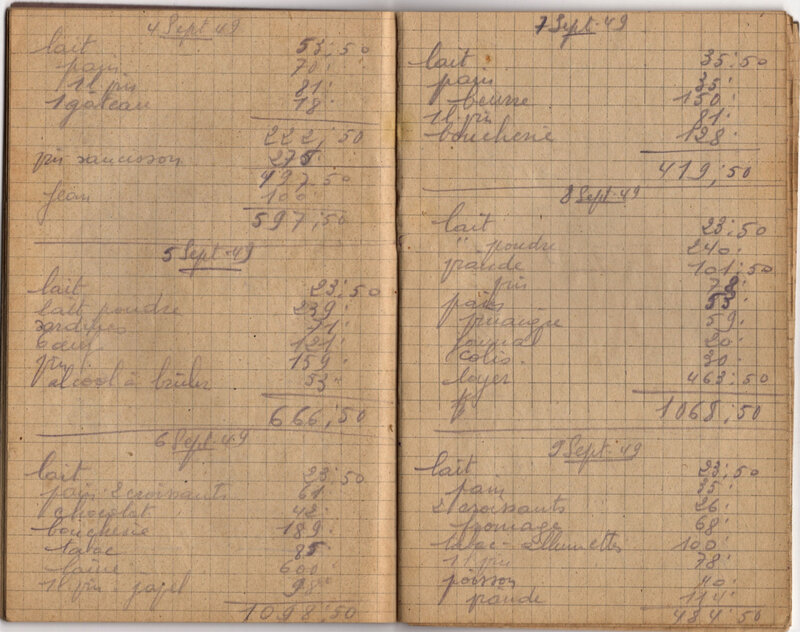 4 Sept 49
lait 53;50
pain 70;
1 l pis 81;
1 gateau 18;
222,50
pis saucisson 275;
497,50
Jean 100
597,50
5 Sept 49
lait 23;50
lait poudre 239
sardines 71;
121;
159;
alcool à brûler 53;
666,50
6 Sept 49
lait 23;50
pain 2 croissants 61;
chocolat 42;
boucherie 189;
tabac 85
laine 600;
98;
1098;50
7 Sept 49
lait 35;50
pain 35;
beurre 150;
1 l pis 81;
boucherie 128;
419;50
8 Sept 49
lait 23;50
" poudre 240;
101;50
78;
pain 53;
59;
journal 20;
colis 30;
loyer 463;50
1068,50
9 Sept 49
lait 23;50
pain 35;
2 croissants 26;
fromage 68;
tabac - allumettes 100;
78;
poisson 40;
114;
484;50